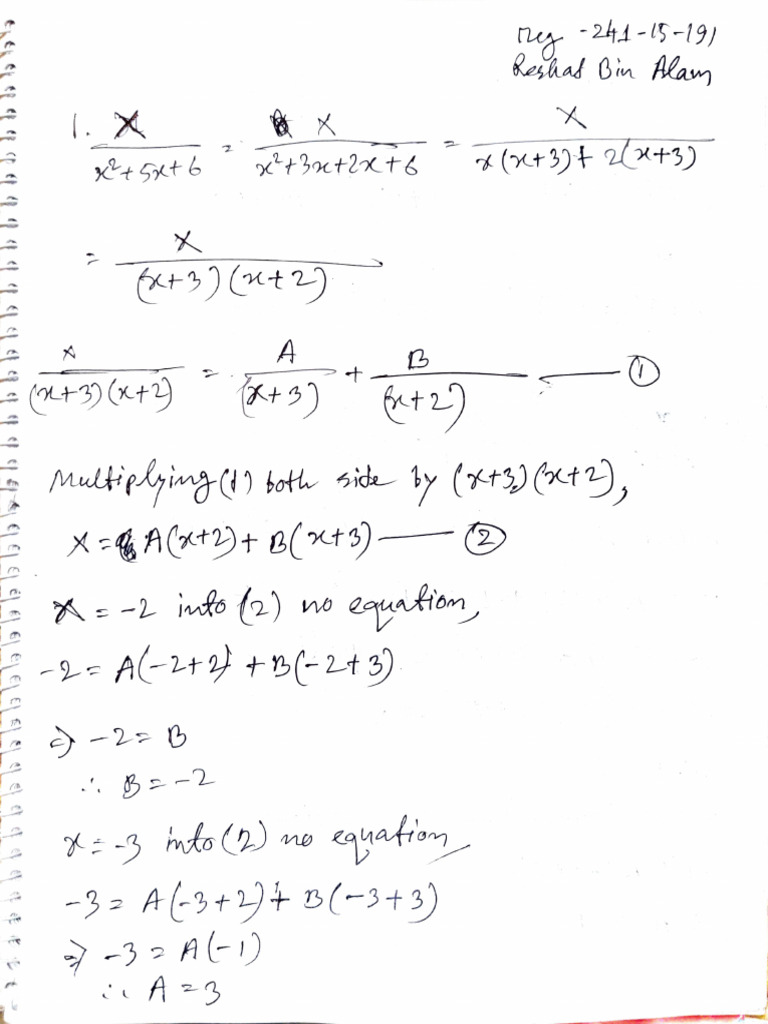 Reg - 241-15-191
Reshat Bin Alam
1. x/(x²+5x+6) = x/(x²+3x+2x+6) = x/(x(x+3)+2(x+3))
= x/((x+3)(x+2))
x/((x+3)(x+2)) = A/(x+3) + B/(x+2) —— ①
Multiplying (1) both side by (x+3)(x+2),
x = A(x+2) + B(x+3) —— ②
x = -2 into (2) no equation,
-2 = A(-2+2) + B(-2+3)
⇒ -2 = B
∴ B = -2
x = -3 into (2) no equation,
-3 = A(-3+2) + B(-3+3)
⇒ -3 = A(-1)
∴ A = 3